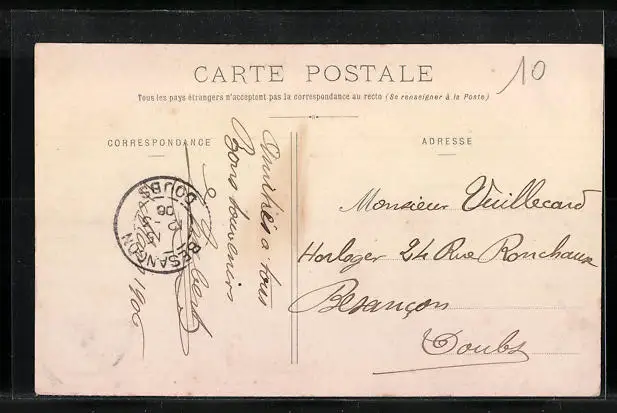 CARTE POSTALE
10
Tous les pays étrangers n'acceptent pas la correspondance au recto (Se renseigner à la Poste)
CORRESPONDANCE
Amitiés à tous
Bons souvenirs
1906
BESANÇON
DOUBS
06
ADRESSE
Monsieur Vuillecard
Horloger 24 Rue Ronchaux
Besançon
Doubs